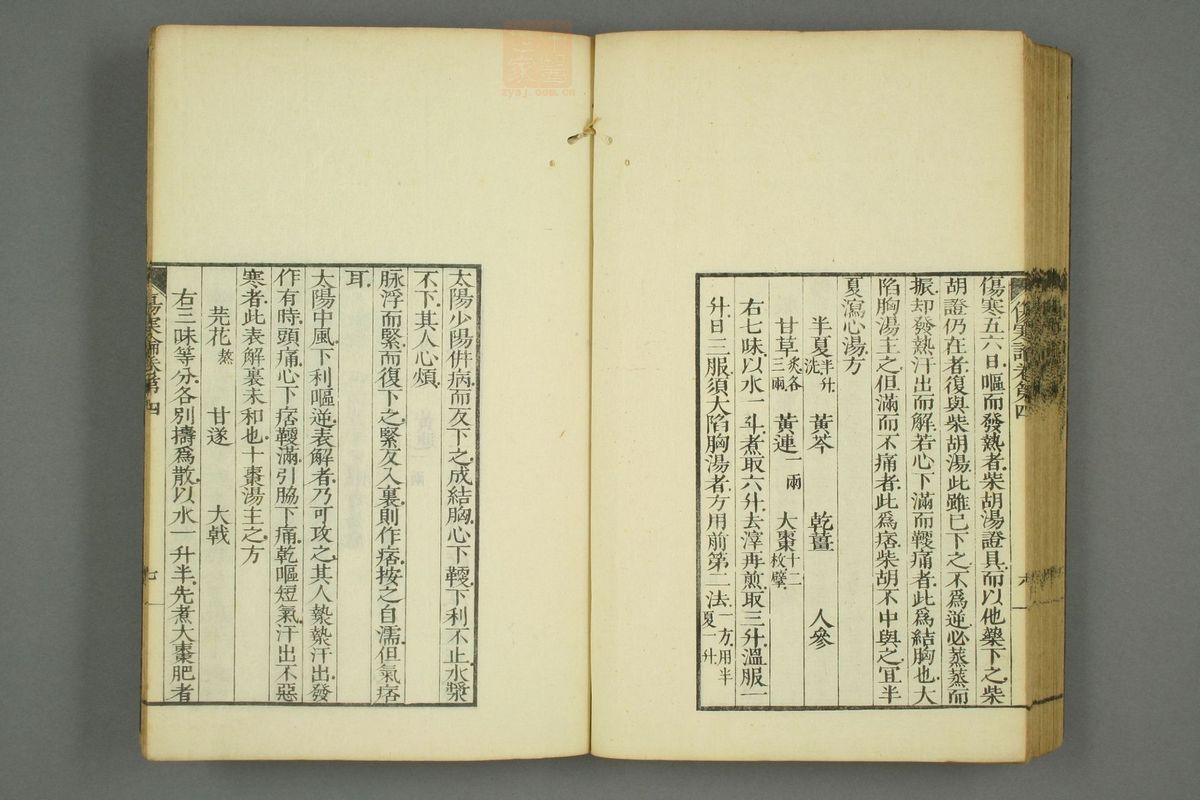 傷寒五六日嘔而發熱者柴胡湯證具而以他藥下之柴
胡證仍在者復與柴胡湯此雖已下之不爲逆必蒸蒸而
振却發熱汗出而解若心下滿而鞕痛者此爲結胸也大
陷胸湯主之但滿而不痛者此爲痞柴胡不中與之宜半
夏瀉心湯方
半夏半升洗 黃芩 乾薑 人參
甘草炙各三兩 黃連一兩 大棗十二枚擘
右七味以水一斗煮取六升去滓再煎取三升溫服一
升日三服須大陷胸湯者方用前第二法一方用半夏一升
傷寒論卷第四
太陽少陽併病而反下之成結胸心下鞕下利不止水漿
不下其人心煩
脉浮而緊而復下之緊反入裏則作痞按之自濡但氣痞
耳
太陽中風下利嘔逆表解者乃可攻之其人漐漐汗出發
作有時頭痛心下痞鞕滿引脇下痛乾嘔短氣汗出不惡
寒者此表解裏未和也十棗湯主之方
芫花熬 甘遂 大戟
右三味等分各別擣爲散以水一升半先煮大棗肥者
傷寒論卷第四 七
zysj.com.cn